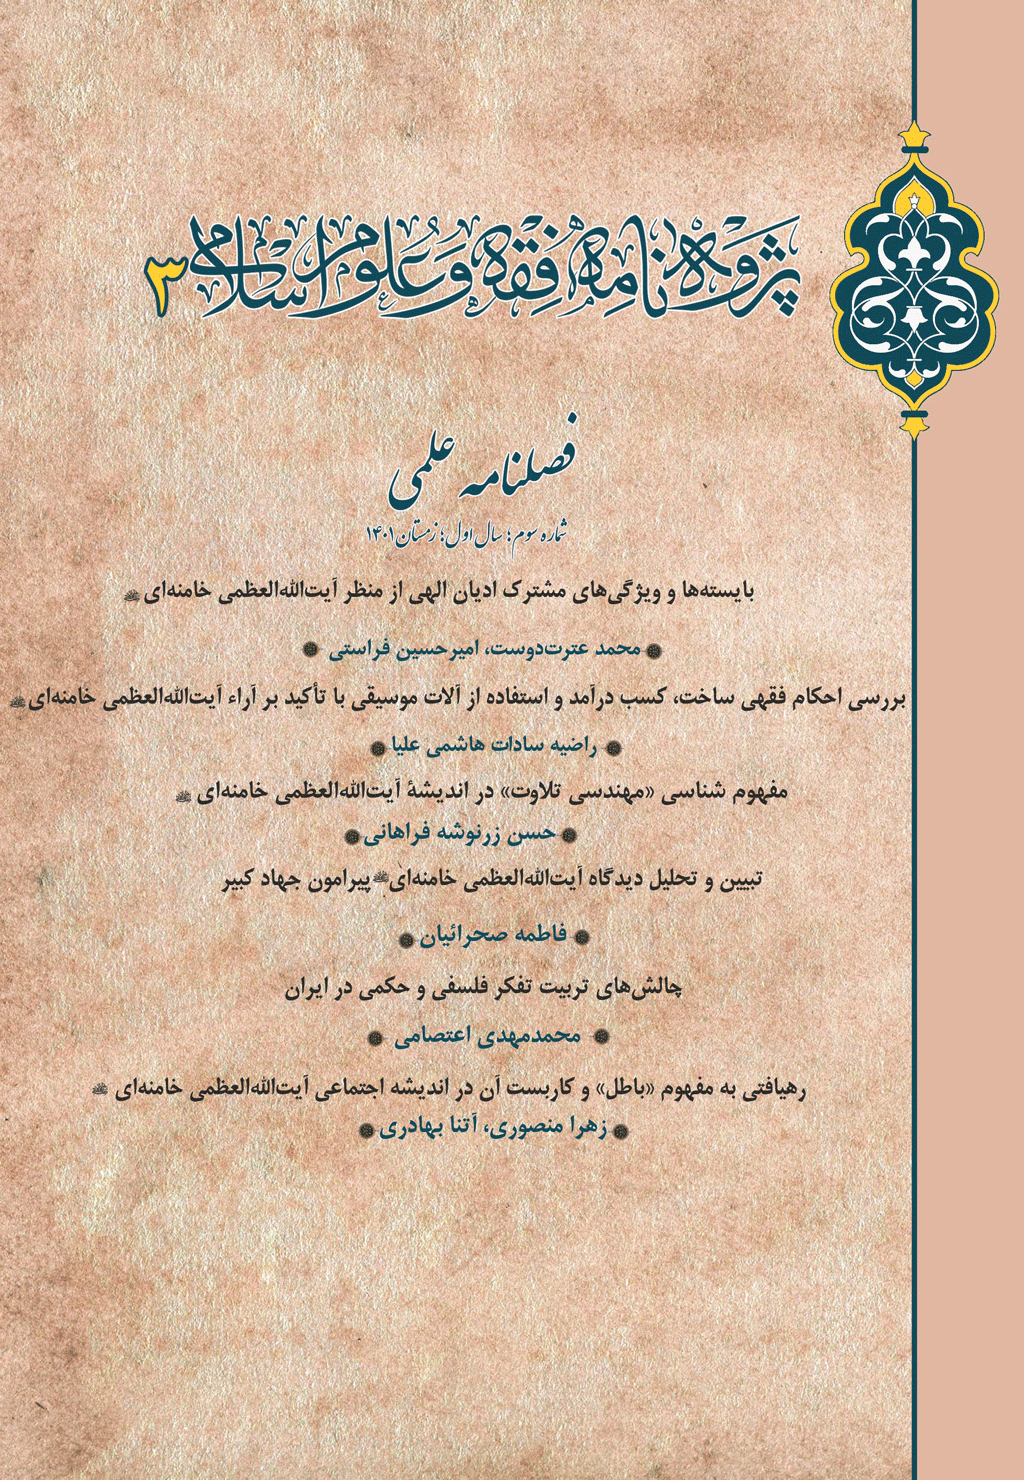 پژوهنامه فقه و علوم اسلامی ۳
فصلنامه علمی
شماره سوم؛ سال اول؛ زمستان ۱۴۰۱
بایسته‌ها و ویژگی‌های مشترک ادیان الهی از منظر آیت‌الله‌العظمی خامنه‌ای
محمد عترت‌دوست، امیرحسین فراستی
بررسی احکام فقهی ساخت، کسب درآمد و استفاده از آلات موسیقی با تأکید بر آراء آیت‌الله‌العظمی خامنه‌ای
راضیه سادات هاشمی علیا
مفهوم شناسی «مهندسی تلاوت» در اندیشهٔ آیت‌الله‌العظمی خامنه‌ای
حسن زرنوشه فراهانی
تبیین و تحلیل دیدگاه آیت‌الله‌العظمی خامنه‌ای پیرامون جهاد کبیر
فاطمه صحرائیان
چالش‌های تربیت تفکر فلسفی و حکمی در ایران
محمدمهدی اعتصامی
رهیافتی به مفهوم «باطل» و کاربست آن در اندیشه اجتماعی آیت‌الله‌العظمی خامنه‌ای
زهرا منصوری، آتنا بهادری